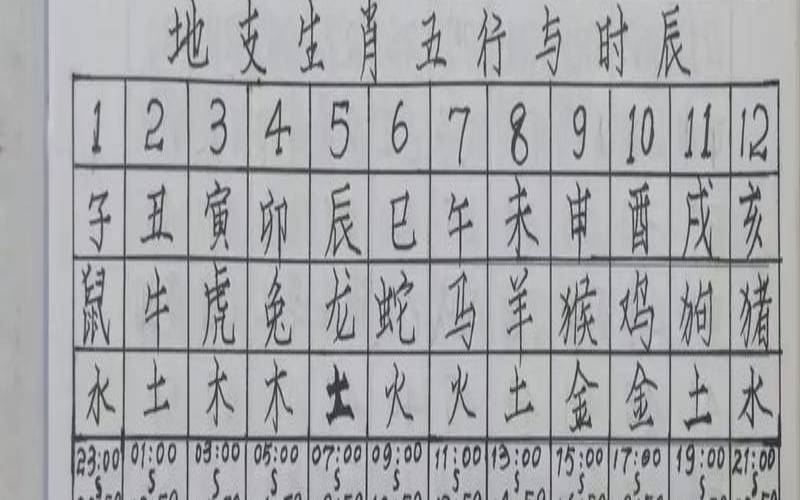 地支生肖五行与时辰
1 2 3 4 5 6 7 8 9 10 11 12
子 丑 寅 卯 辰 巳 午 未 申 酉 戌 亥
鼠 牛 虎 兔 龙 蛇 马 羊 猴 鸡 狗 猪
水 土 木 木 土 火 火 土 金 金 土 水
23:00 01:00 03:00 05:00 07:00 09:00 11:00 13:00 15:00 17:00 19:00 21:00